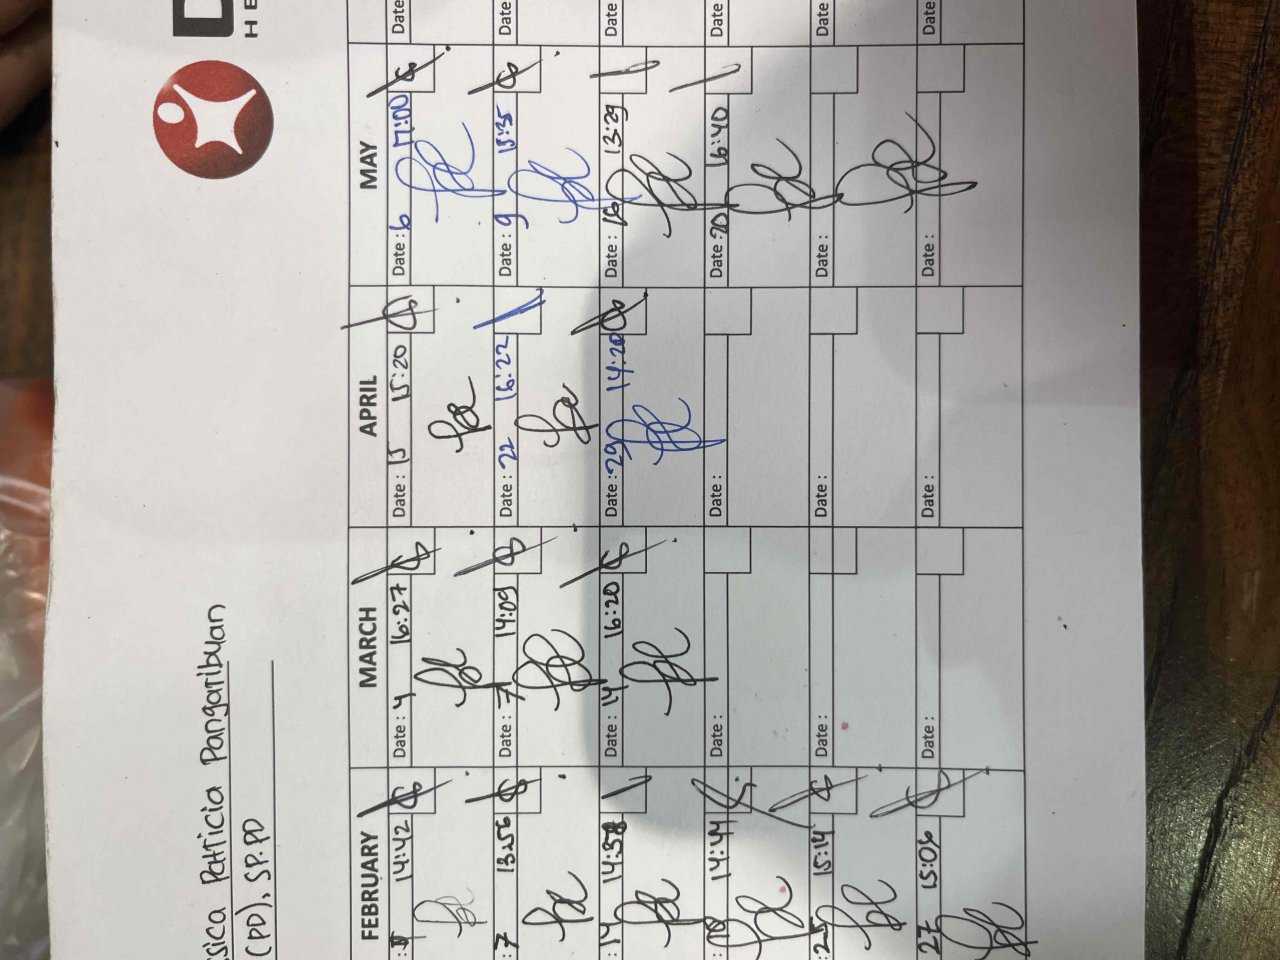 ssica Patricia Pangaribuan
(PD), SP.PD
FEBRUARY MARCH APRIL MAY
14:42 Date: 4 16:27 Date: 15 15:20 Date: 6 17:00 Date
: 7 13:56 Date: 7 14:09 Date: 22 16:22 Date: 9 Date
: 14 14:58 Date: 14 16:20 Date: 29 14:20 Date: 13:29 Date
14:44 Date: Date: Date: 20 16:40 Date
: 25 15:14 Date: Date: Date: Date
27 Date: Date: Date: Date